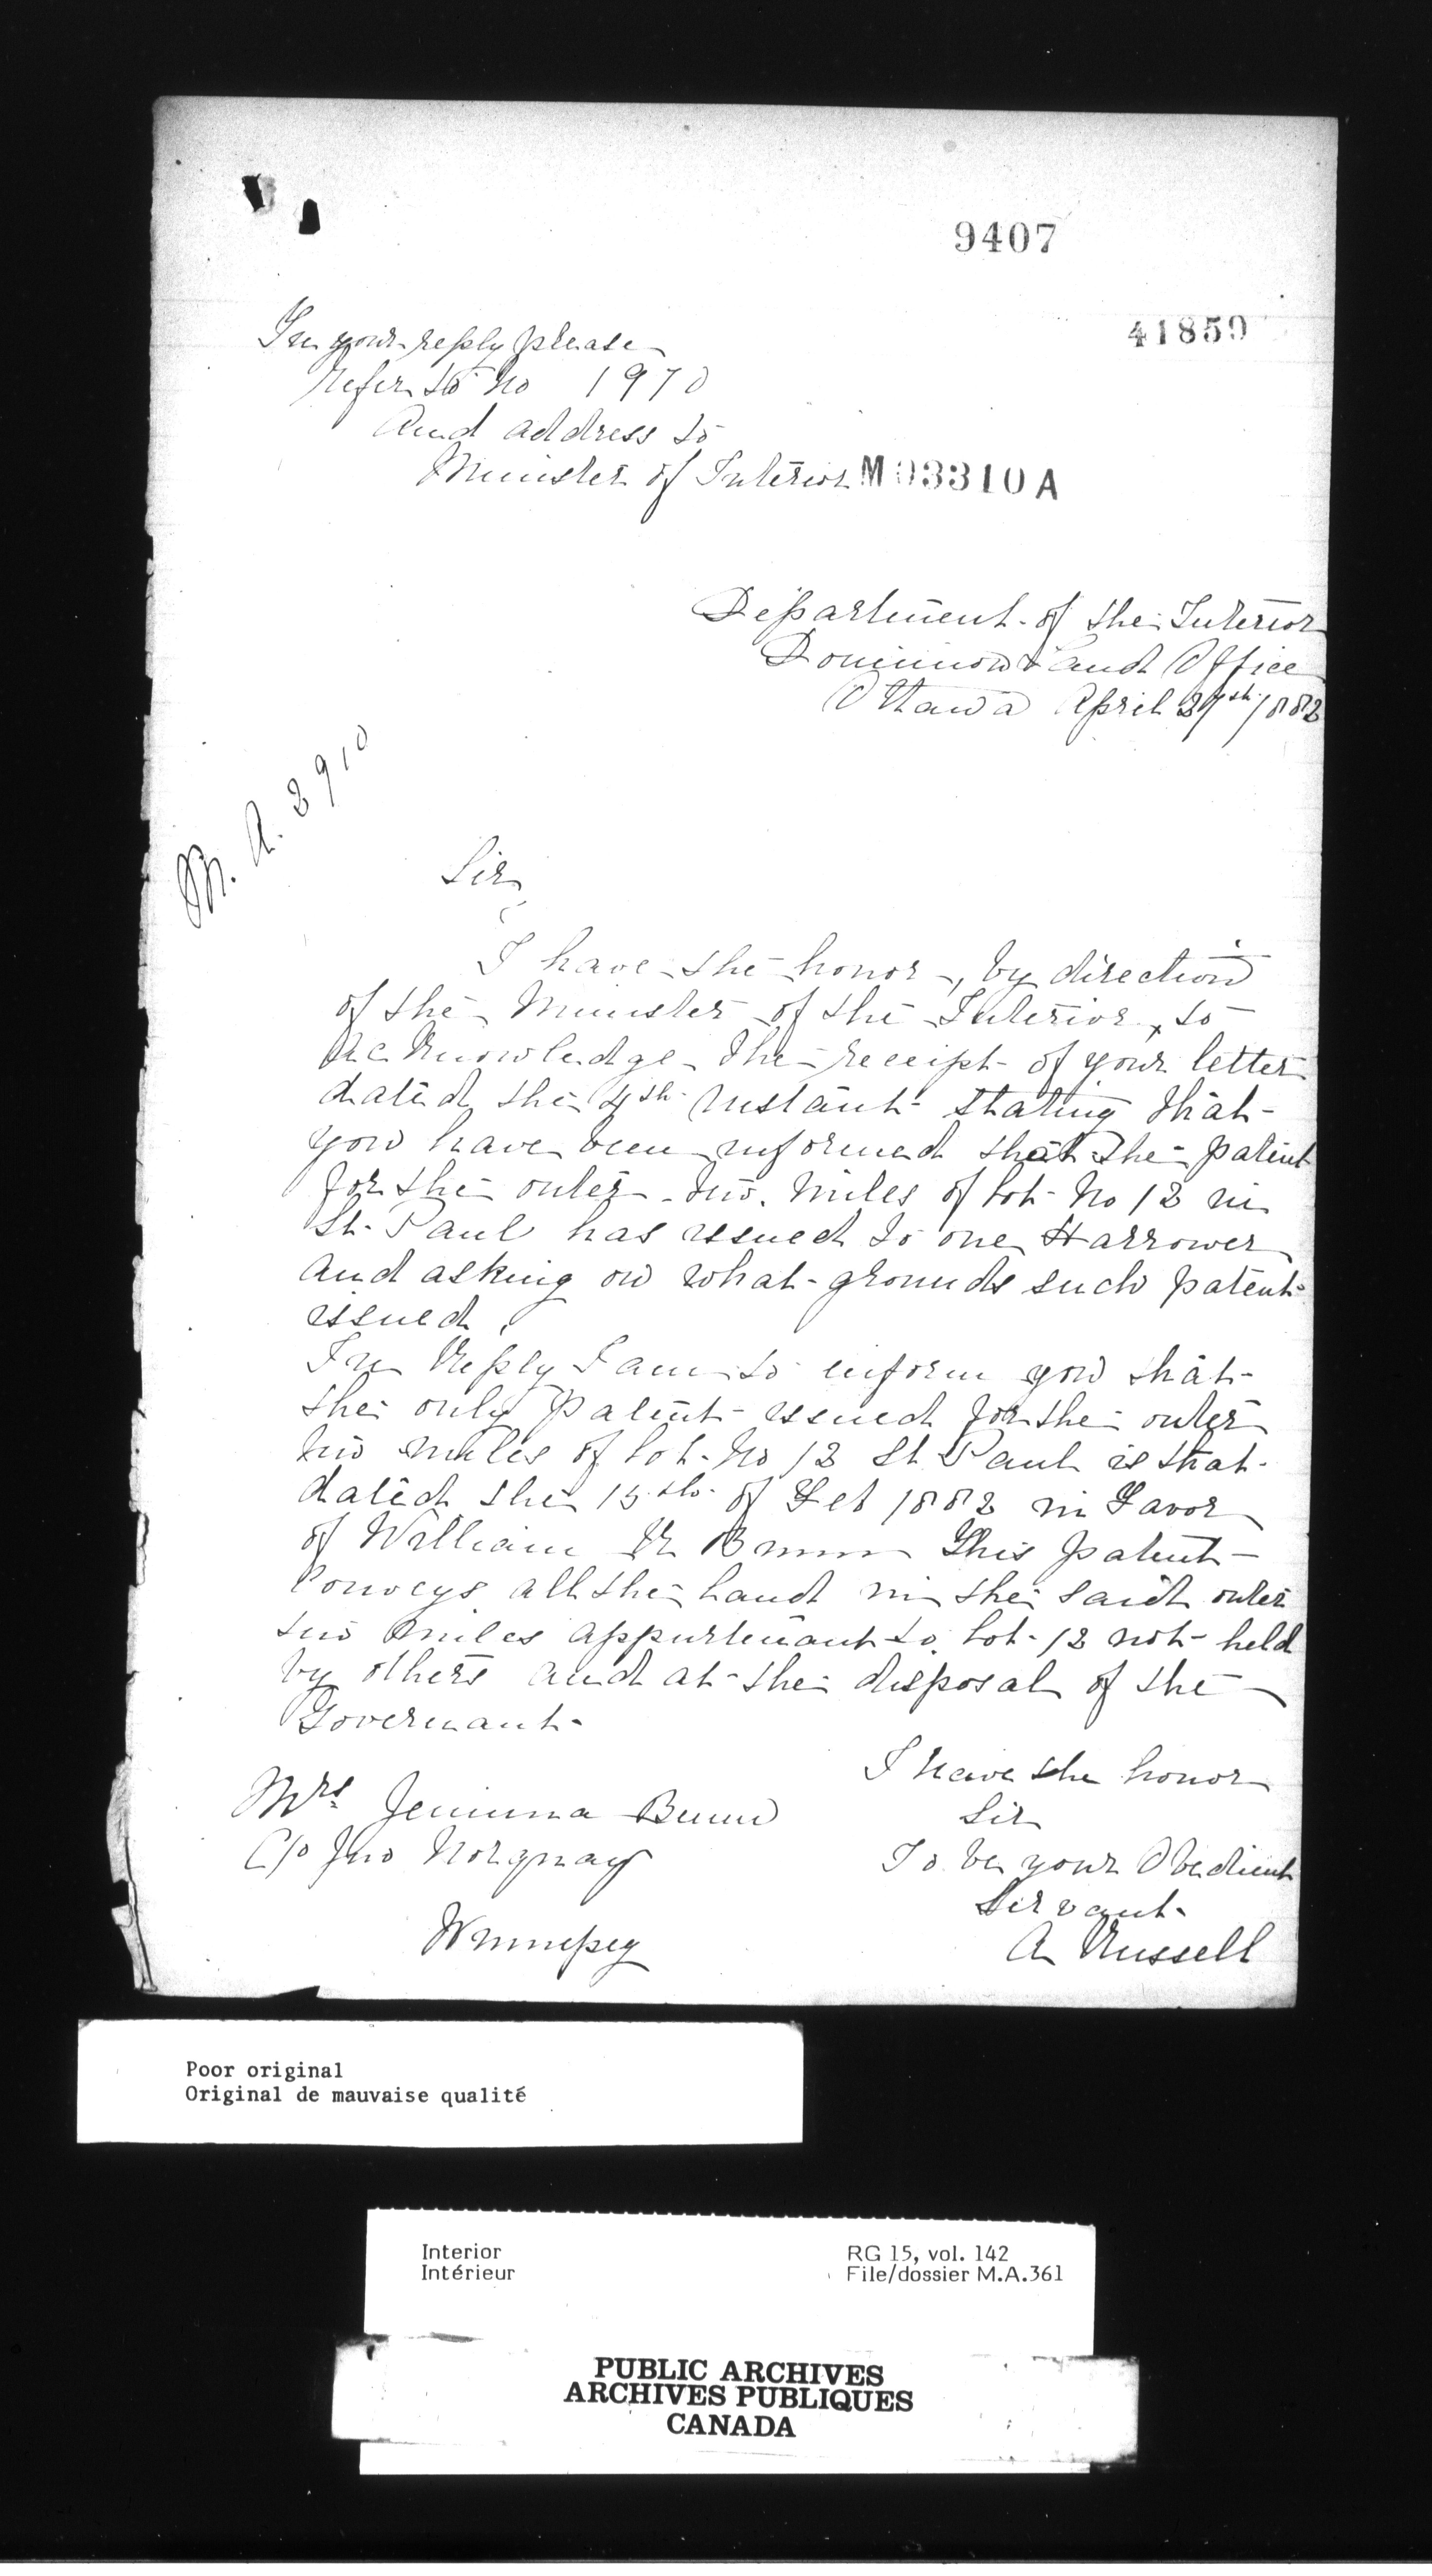 9407
41859
In your reply please
refer to No 1970
And address to
Minister of Interior
M 03310 A
Department of the Interior
Dominion Land Office
Ottawa April 27th 1882
M. A. 2910
Sir,
I have the honor, by direction
of the Minister of the Interior, to
acknowledge the receipt of your letter
dated the 4th instant stating that
you have been informed that the patent
for the outer two miles of lot No 12 in
St. Paul has issued to one Harrower
and asking on what grounds such patent
issued.
In Reply I am to inform you that
the only Patent issued for the outer
two miles of lot No 12 St Paul is that
dated the 15th of Feb 1882 in Favor
of William R Bunn This patent
Conveys all the land in the said outer
two miles appurtenant to lot 12 not held
by others and at the disposal of the
Governant
I have the honor
Sir
To be your Obedient
Servant
A Russell
Mrs Jemima Bunn
C/o Jno Norquay
Winnepeg
Poor original
Original de mauvaise qualité
Interior
Intérieur
RG 15, vol. 142
File/dossier M.A.361
PUBLIC ARCHIVES
ARCHIVES PUBLIQUES
CANADA